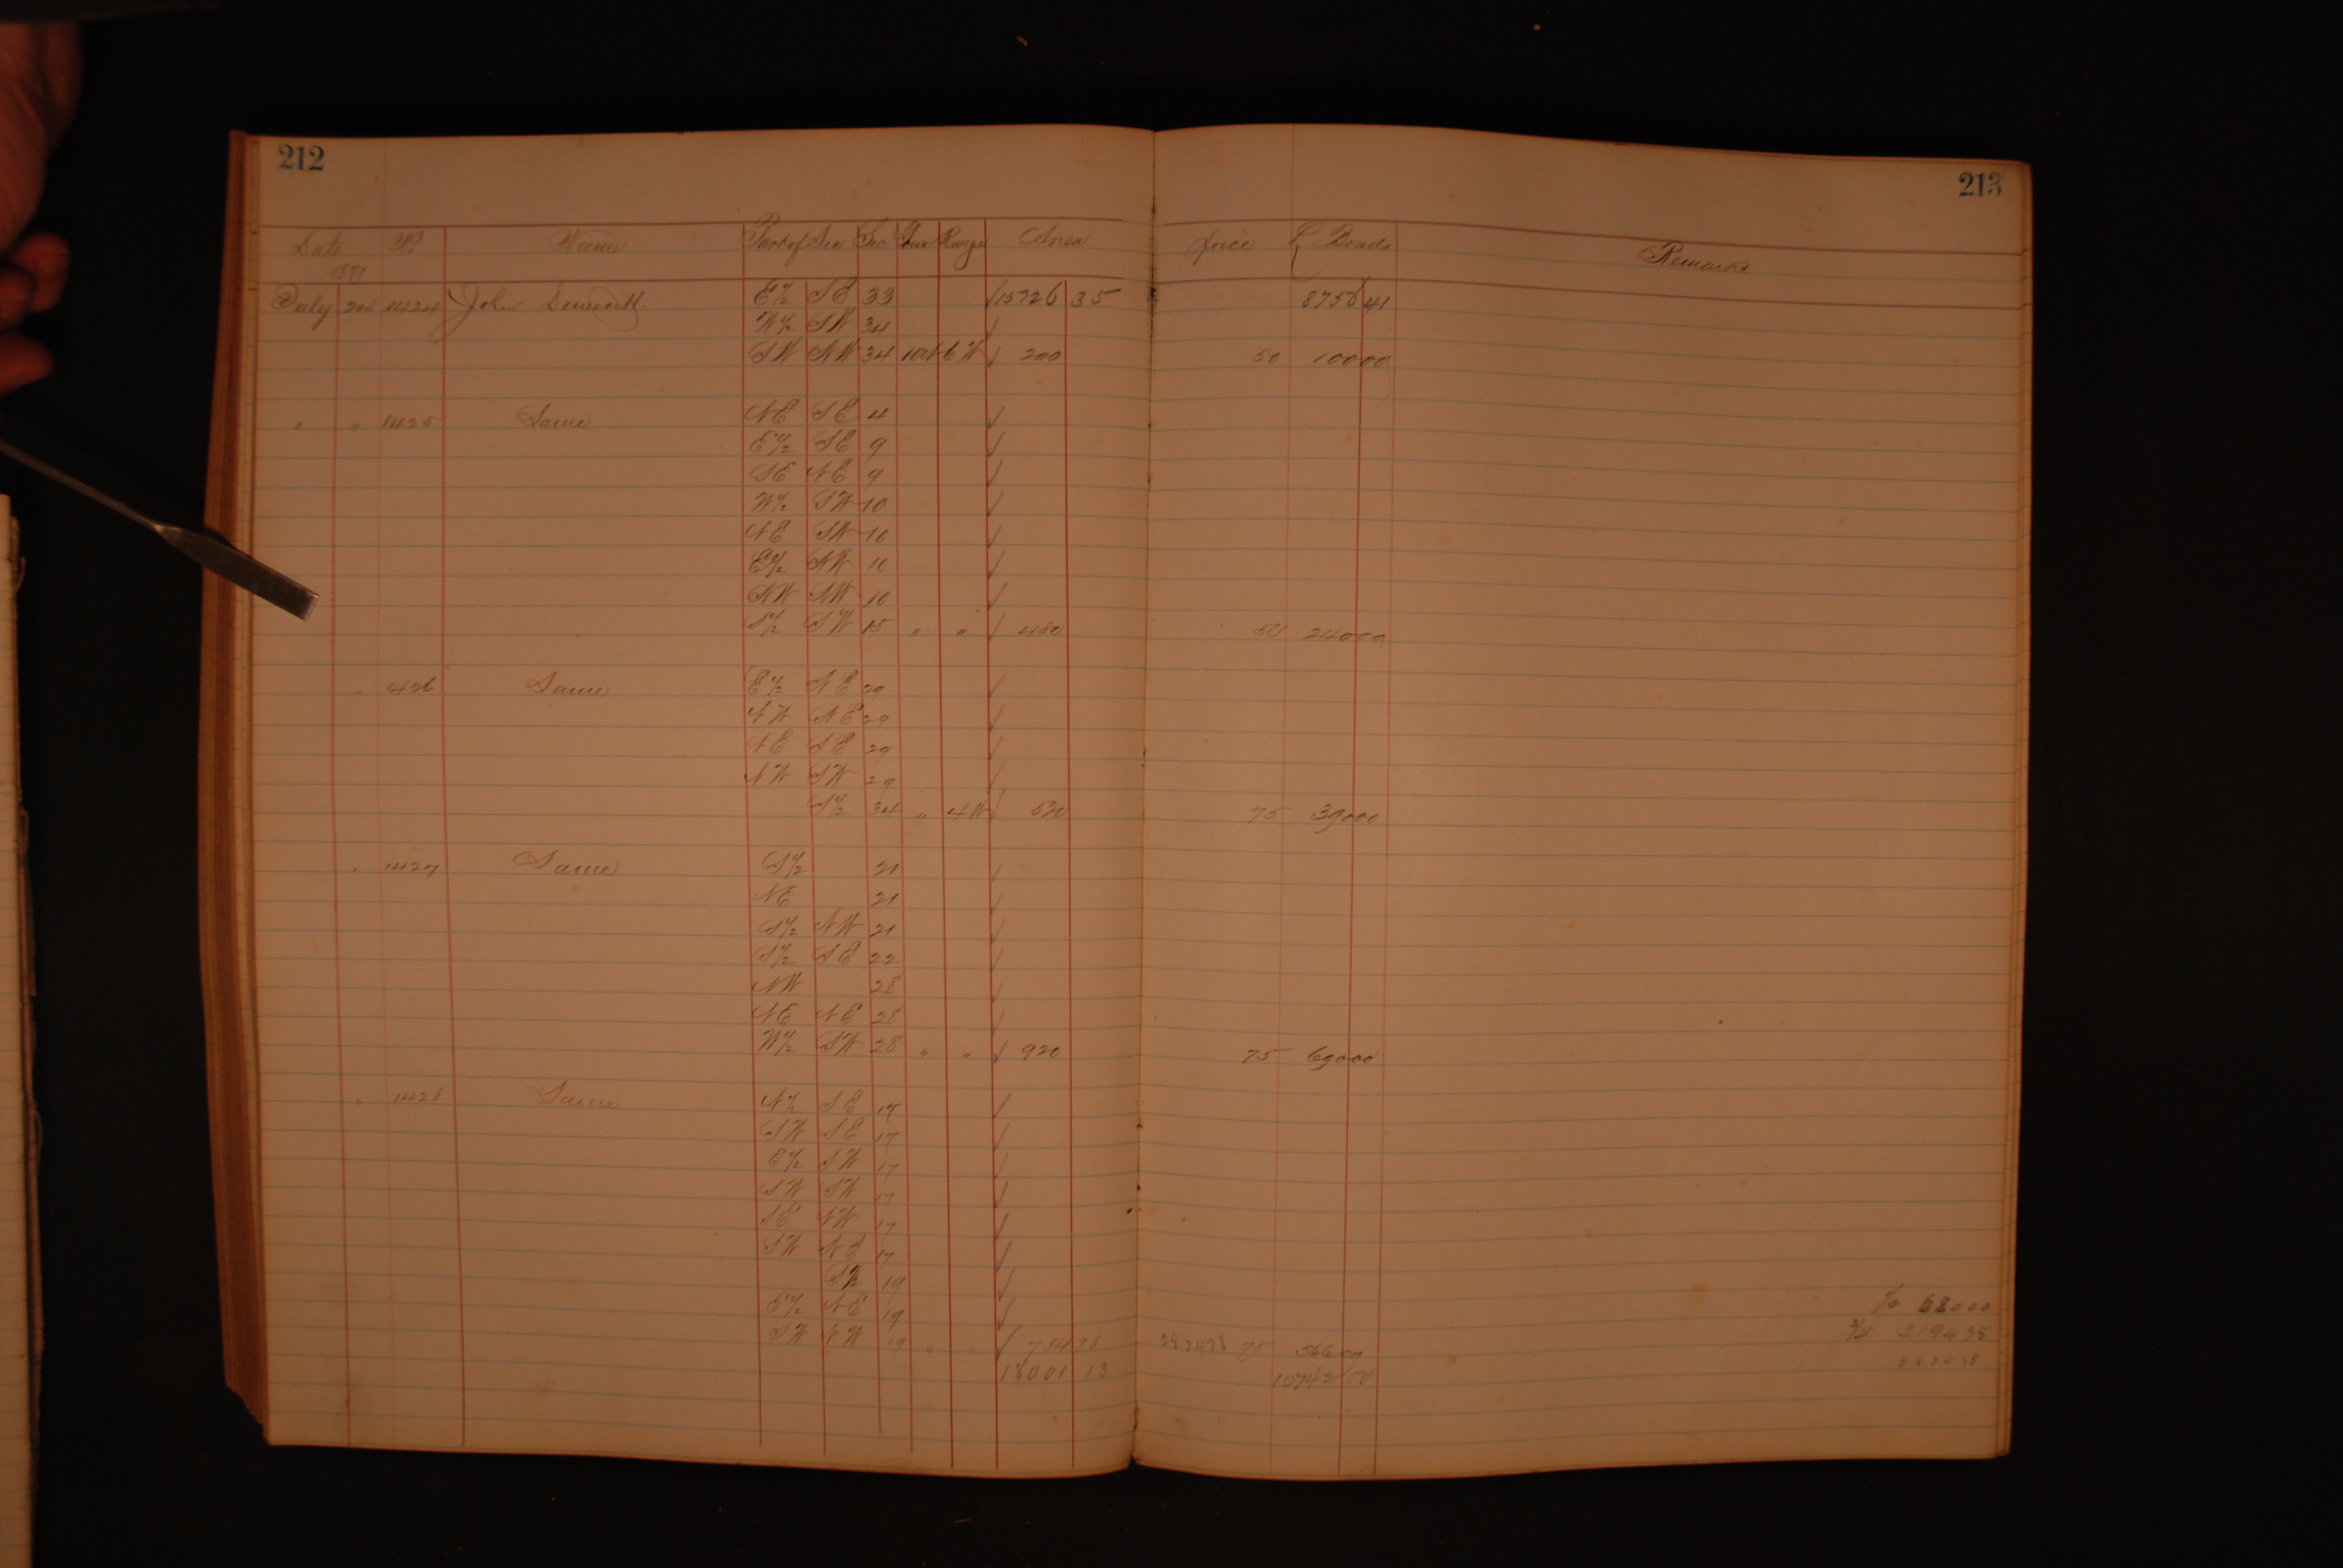 212
213
Date No. Name Part of Sec Sec Twn Range Area Price Bonds Remarks
1871
July 20 1424 John E½ SE 33 13726 35 8758 41
W½ SW 34
SW NW 34 6 W 200 50 100 00
" " 1425 Same NE SE 4
E½ SE 9
SE NE 9
W½ SW 10
NE SW 10
E½ NW 10
NW NW 10
S½ SW 15 " " 480 50 240 00
" 1426 Same E½ NE 29
NW NE 29
NE SE 29
NW SW 29
S½ 34 " 4W 520 75 390 00
" 1427 Same S½ 21
NE 21
S½ NW 21
S½ SE 22
NW 28
NE NE 28
W½ SW 28 " " 920 75 690 00
" 1428 Same N½ SE 17
SW SE 17
E½ SW 17
SW SW 17
SE NW 17
SW NE 17
19
E½ NE 19
SW NW 19 " " 75
18001 13
680 00
¾